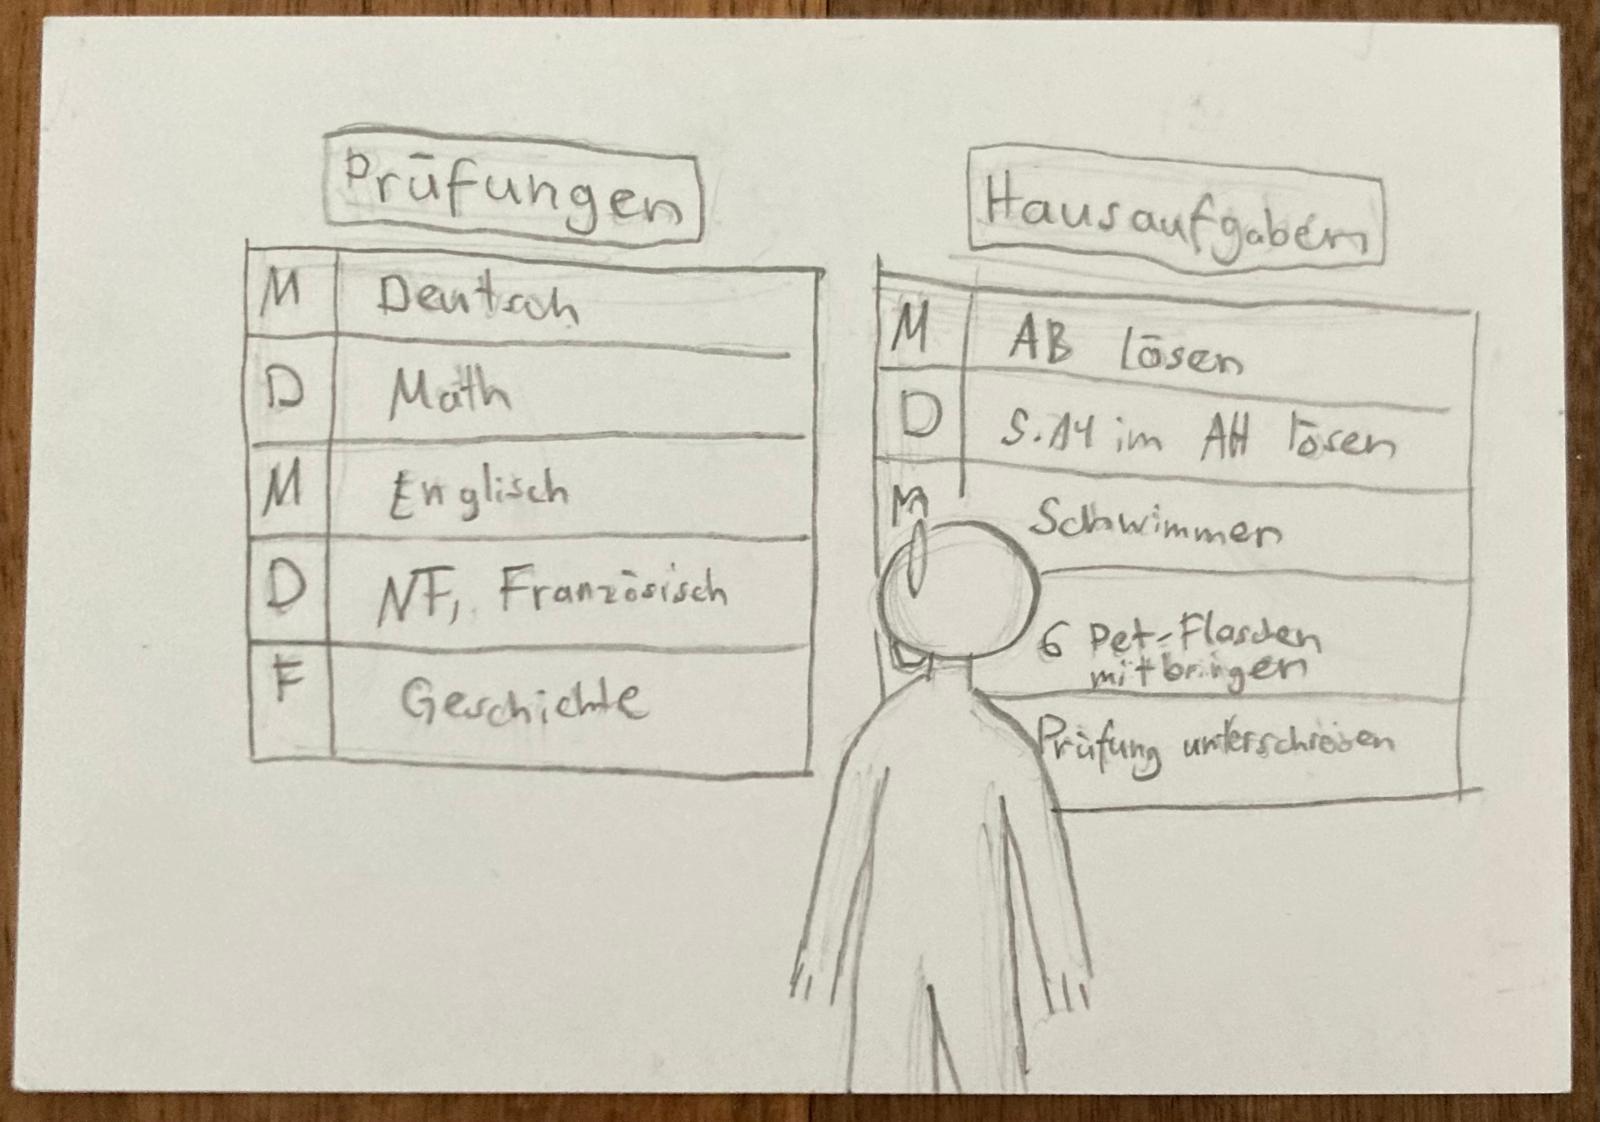 Prüfungen
M Deutsch
D Math
M Englisch
D NF, Französisch
F Geschichte
Hausaufgaben
M AB lösen
D S.14 im AH lösen
M Schwimmen
6 Pet-Flaschen
mitbringen
Prüfung unterschreiben